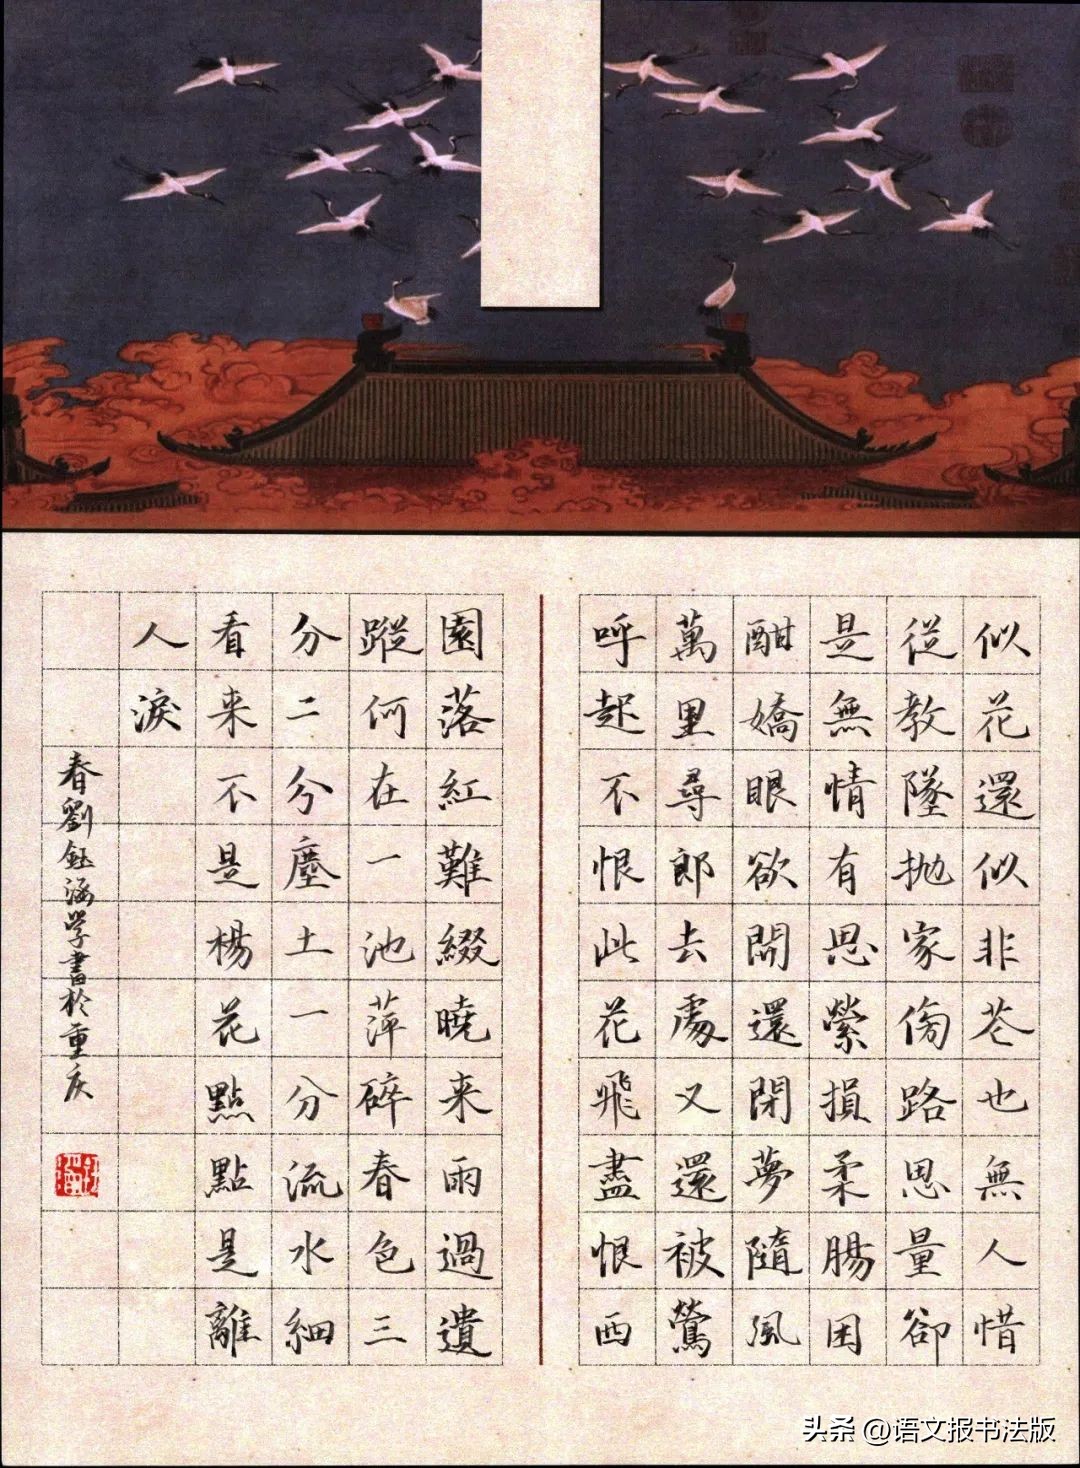 似花還似非花也無人惜
從教墜抛家傍路思量卻
是無情有思縈損柔腸困
酣嬌眼欲開還閉夢隨風
萬里尋郎去處又還被鶯
呼起不恨此花飛盡恨西
園落紅難綴曉来雨過遺
蹤何在一池萍碎春色三
分二分塵土一分流水細
看来不是楊花點點是離
人淚
春劉鈺涵学書於重庆
头条 @语文报书法版